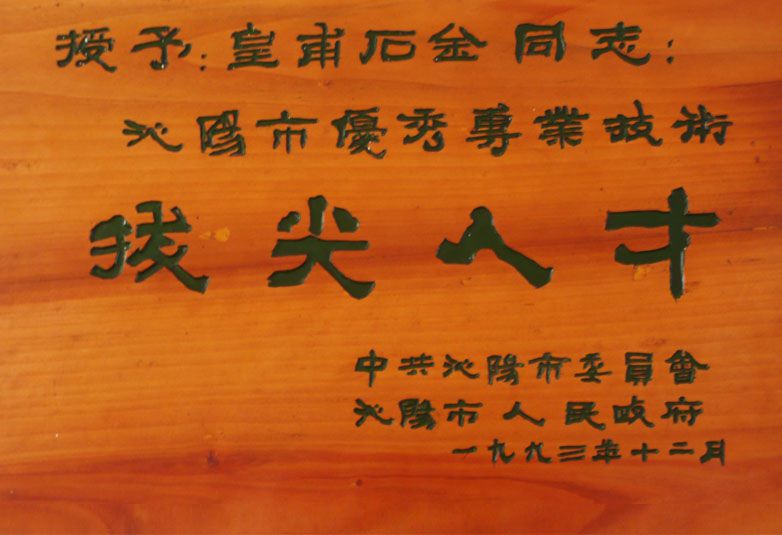 授予:皇甫石金同志:
沁陽市優秀專業技術
拔尖人才
中共沁陽市委員會
沁陽市人民政府
一九九三年十二月